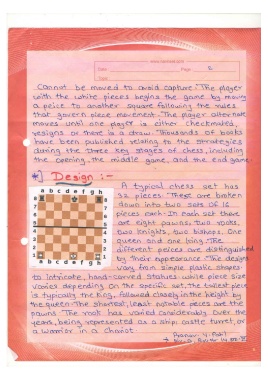 Date
Page 2
cannot be moved to avoid capture. The player
with the white pieces begins the game by moving
a peice to another square following the rules
that govern piece movement. The player alternate
moves until one player is either checkmated,
resigns or there is a draw. Thousands of books
have been published relating to the strategies
during the three key stages of chess, including
the opening, the middle game, and the end game
Design :-
a b c d e f g h
a b c d e f g h
A typical chess set has
32 pieces. These are broken
down into two sets of 16
pieces each. In each set there
are eight pawns, two rooks,
two knights, two bishops, one
queen and one king. The
different pieces are distinguished
by their appearance. The designs
vary from simple plastic shapes
to intricate, hand-carved statues. while piece size
varies depending on the specific set, the tallest piece
is typically the king, followed closely in the height by
the queen. The shortest, least notable pieces are the
pawns. The rook has varied considerably over the
years, being represented as a ship, castle turret, or
a warrior in a chariot.